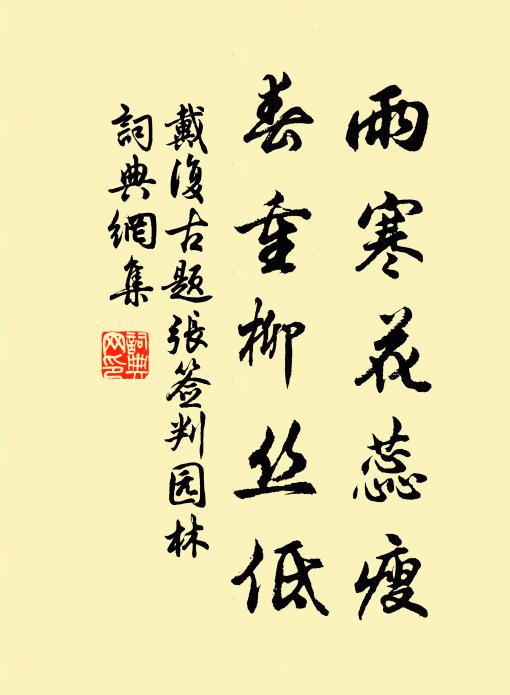 雨寒花蕊瘦
春重柳丝低
戴復古题張签判园林
詞典網集
詞典網印